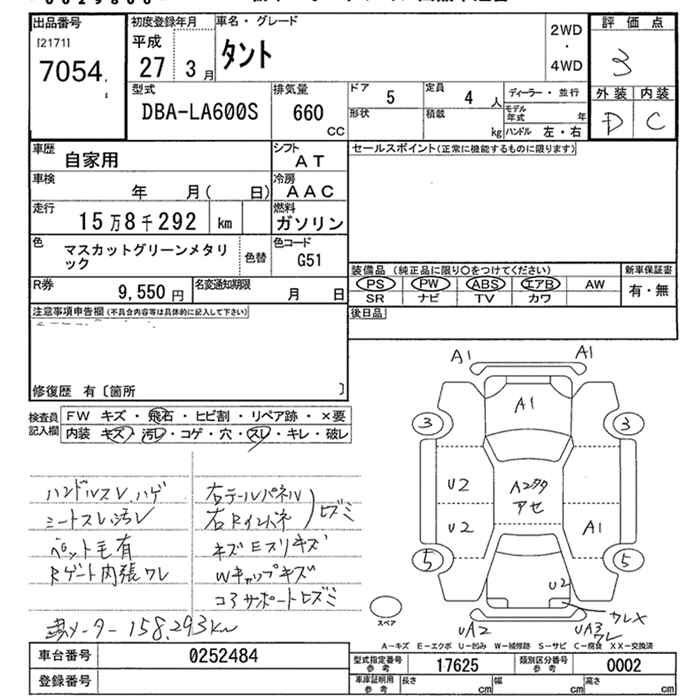 出品番号
[2171]
7054
初度登録年月
平成
27 3 月
車名・グレード
タント
2WD
・
4WD
評価点
3
外装 内装
D C
型式
DBA-LA600S
排気量
660
CC
ドア 5
定員 4 人
ディーラー・並行
形状
積載 kg
モデル年式 年
ハンドル 左・右
車歴
自家用
シフト
AT
セールスポイント(正常に機能するものに限ります)
車検
年 月( 日)
冷房
AAC
走行
15万8千292 km
燃料
ガソリン
色
マスカットグリーンメタリ
ック
色替
色コード
G51
装備品 (純正品に限り〇をつけてください)
新車保証書
PS PW ABS エアB AW
有・無
SR ナビ TV カワ
R券
9,550 円
名変通知期限
月 日
後日品
注意事項申告欄(不具合内容等は具体的に記入して下さい)
修復歴 有〔箇所 〕
検査員
記入欄
FW キズ・飛石・ヒビ割・リペア跡・×要
内装 キズ・汚レ・コゲ・穴・スレ・キレ・破レ
ハンドルスレ、ハゲ
シートスレ汚レ
ペット毛有
Rゲート内張ワレ
右テールパネル
右Rインパネ
ヒズミ
キズEスリキズ
Wキャップキズ
コアサポートヒズミ
メーター 158,293km
A1 A1
A1
3 3
U2
Aタタ
アセ
U2
A1
5 5
U2
ワレX
UA2
UA3
ワレ
スペア
A−キズ E−エクボ U−凹み W−補修跡 S−サビ C−腐食 XX−交換済
車台番号 0252484
型式指定番号
参考
17625
類別区分番号
参考
0002
680番号
車庫証明用
参考
長さ cm
幅 cm
高さ cm